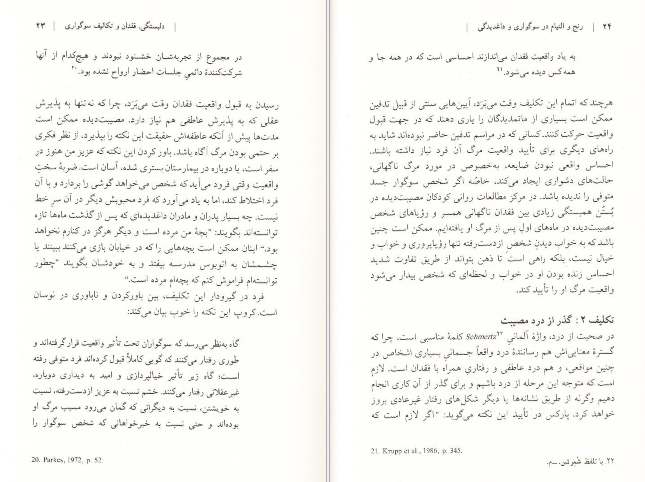 دلبستگی، فقدان و تکالیف سوگواری | ۲۳
در مجموع از تجربه‌شان خشنود نبودند و هیچ‌کدام از آنها
شرکت‌کنندهٔ دائمیِ جلسات احضار ارواح نشده بود.۲۰
رسیدن به قبول واقعیت فقدان وقت می‌بَرَد، چرا که نه‌تنها به پذیرش
عقلی که به پذیرش عاطفی هم نیاز دارد. مصیبت‌دیده ممکن است
مدت‌ها پیش از آنکه عاطفه‌اش حقیقت این نکته را بپذیرد، از نظر فکری
بر حتمی بودن مرگ آگاه باشد. باور کردن این نکته که عزیز من هنوز در
سفر است، یا دوباره در بیمارستان بستری شده، آسان است. ضربهٔ سختِ
واقعیت وقتی فرود می‌آید که شخص می‌خواهد گوشی را بردارد و با آن
فرد اختلاط کند، اما به یاد می‌آورد که فرد محبوبش دیگر در آن سر خط
نیست. چه بسیار پدران و مادران داغدیده‌ای که پس از گذشت ماه‌ها تازه
توانسته‌اند بگویند: "بچهٔ من مرده است و دیگر هرگز در کنارم نخواهد
بود." اینان ممکن است بچه‌هایی را که در خیابان بازی می‌کنند ببینند یا
چشمشان به اتوبوس مدرسه بیفتد و به خودشان بگویند "چطور
توانسته‌ام فراموش کنم که بچه‌ام مرده است."
فرد در گیرودار این تکلیف، بین باورکردن و ناباوری در نوسان
است. کروپ این نکته را خوب بیان می‌کند:
گاه به‌نظر می‌رسد که سوگواران تحت تأثیر واقعیت قرار گرفته‌اند و
طوری رفتار می‌کنند که گویی کاملاً قبول کرده‌اند فرد متوفی رفته
است؛ گاه زیر تأثیر خیالپردازی و امید به دیداری دوباره،
غیرعقلانی رفتار می‌کنند. خشم نسبت به عزیز ازدست‌رفته، نسبت
به خویشتن، نسبت به دیگرانی که گمان می‌رود مسبب مرگ او
بوده‌اند و حتی نسبت به خیرخواهانی که شخص سوگوار را
20. Parkes, 1972, p. 52.
۲۴ | رنج و التیام در سوگواری و داغدیدگی
به یاد واقعیت فقدان می‌اندازند احساسی است که در همه جا و
همه‌کس دیده می‌شود.۲۱
هرچند که اتمام این تکلیف وقت می‌بَرَد، آیین‌هایی سنتی از قبیل تدفین
ممکن است بسیاری از ماتمدیدگان را یاری دهند که در جهت قبول
واقعیت حرکت کنند. کسانی که در مراسم تدفین حاضر نبوده‌اند شاید به
راه‌های دیگری برای تأیید واقعیت مرگ آن فرد نیاز داشته باشند.
احساس واقعی نبودن ضایعه، به‌خصوص در مورد مرگ ناگهانی،
حالت‌های دشواری ایجاد می‌کند، خاصّه اگر شخص سوگوار جسد
متوفی را ندیده باشد. در مرکز مطالعات روانی کودکان مصیبت‌دیده در
بُستُن همبستگی زیادی بین فقدان ناگهانی همسر و رؤیاهای شخص
مصیبت‌دیده در ماه‌های اول پس از مرگ او یافته‌ایم. ممکن است چنین
باشد که به خواب دیدنِ شخص ازدست‌رفته تنها رؤیاپروری و خواب و
خیال نیست، بلکه راهی است تا ذهن بتواند از طریق تفاوت شدید
احساس زنده بودن او در خواب و لحظه‌ای که شخص بیدار می‌شود
واقعیت مرگ او را تأیید کند.
تکلیف ۲: گذر از درد مصیبت
در صحبت از درد، واژهٔ آلمانی Schmertz۲۲ کلمهٔ مناسبی است، چرا که
گسترهٔ معنایی‌اش هم رسانندهٔ درد واقعاً جسمانیِ بسیاری اشخاص در
چنین مواقعی، و هم درد عاطفی و رفتاریِ همراه با فقدان است. لازم
است که متوجه این مرحله از درد باشیم و برای گذر از آن کاری انجام
دهیم وگرنه از طریق نشانه‌ها یا دیگر شکل‌های رفتار غیرعادی بروز
خواهد کرد. پارکس در تأیید این نکته می‌گوید: "اگر لازم است که
21. Krupp et al., 1986, p. 345.
۲۲. با تلفظ شْمِرتس. ـ م.